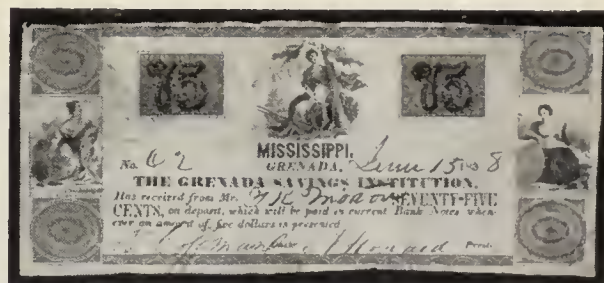 75 75
MISSISSIPPI.
No. 62 GRENADA, June 15 1838
THE GRENADA SAVINGS INSTITUTION.
Has received from Mr. SEVENTY-FIVE
CENTS, on deposit, which will be paid in current Bank Notes when-
ever an amount of five dollars is presented
Howard Prest.